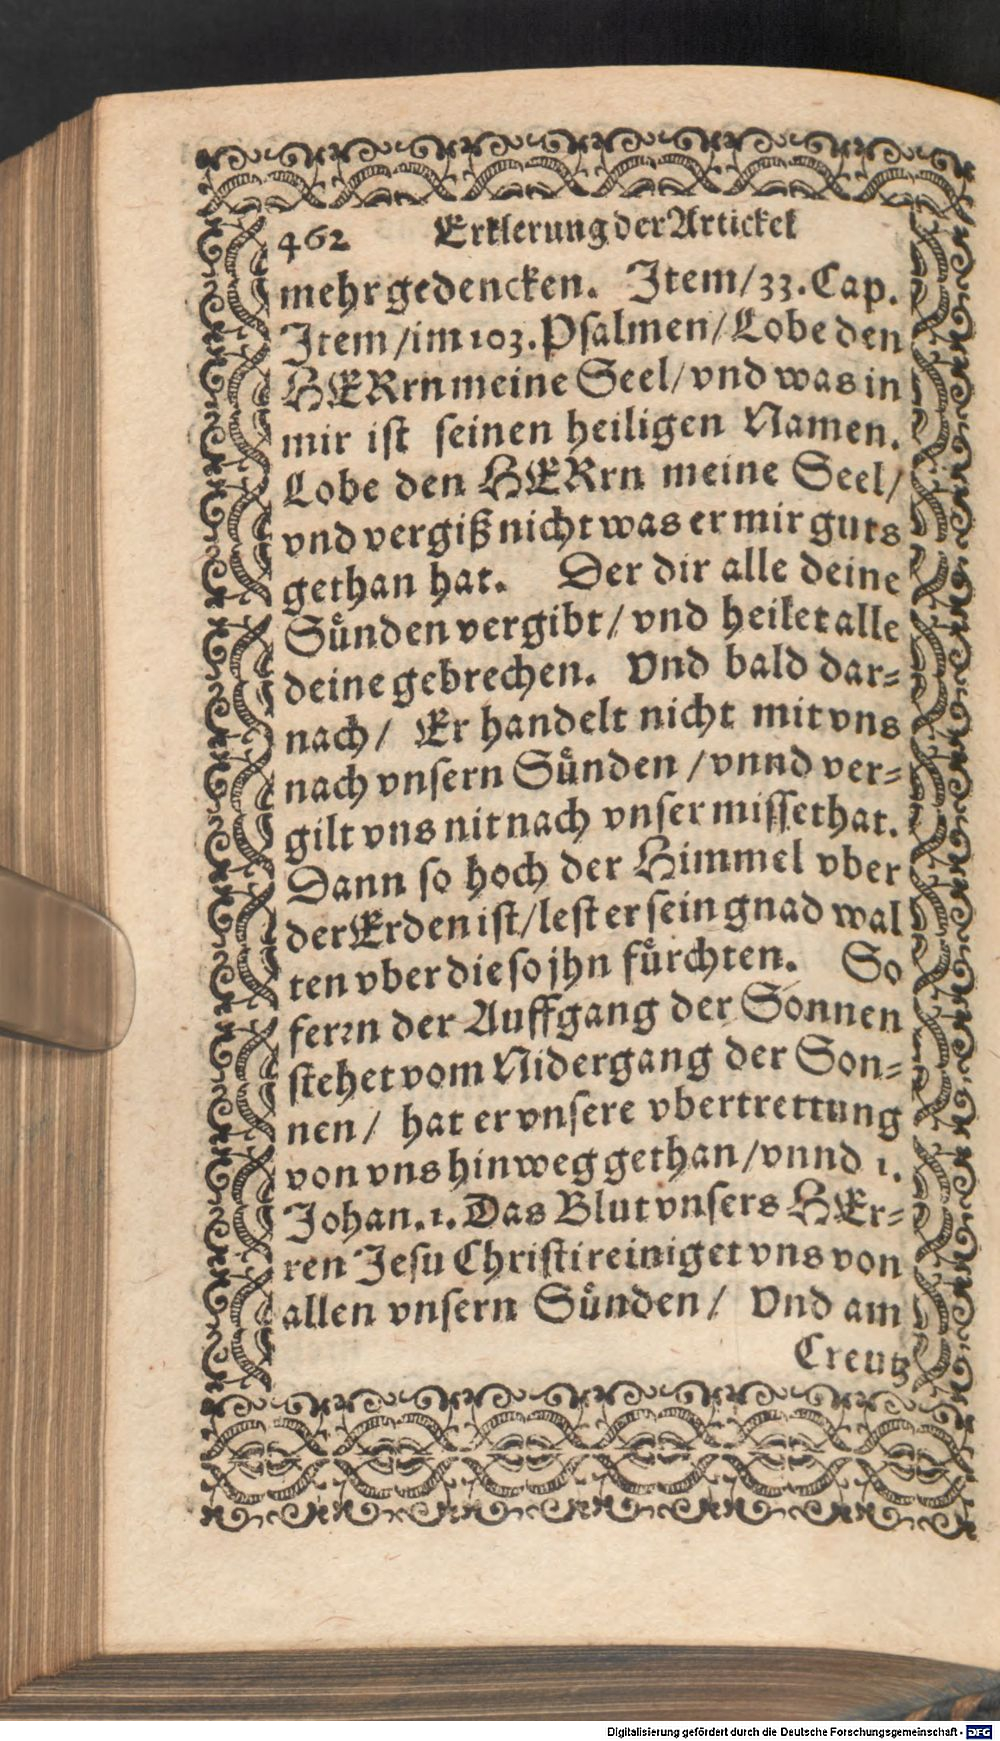 462 Erklerung der Artickel
mehr gedencken. Item/33. Cap.
Item/im 103. Psalmen/Lobe den
HERrn meine Seel/vnd was in
mir ist seinen heiligen Namen.
Lobe den HERrn meine Seel/
vnd vergiß nicht was er mir guts
gethan hat. Der dir alle deine
Suͤnden vergibt/vnd heilet alle
deine gebrechen. Vnd bald dar-
nach/ Er handelt nicht mit vns
nach vnsern Suͤnden/vnnd ver-
gilt vns nit nach vnser missethat.
Dann so hoch der Himmel vber
der Erden ist/lest er sein gnad wal
ten vber die so jhn fuͤrchten. So
ferꝛn der Auffgang der Sonnen
stehet vom Nidergang der Son-
nen/ hat er vnsere vbertrettung
von vns hinweg gethan/vnnd 1.
Johan. 1. Das Blut vnsers HEr-
ren Jesu Christi reiniget vns von
allen vnsern Suͤnden/ Vnd am
Creutz
Digitalisierung gefördert durch die Deutsche Forschungsgemeinschaft - DFG